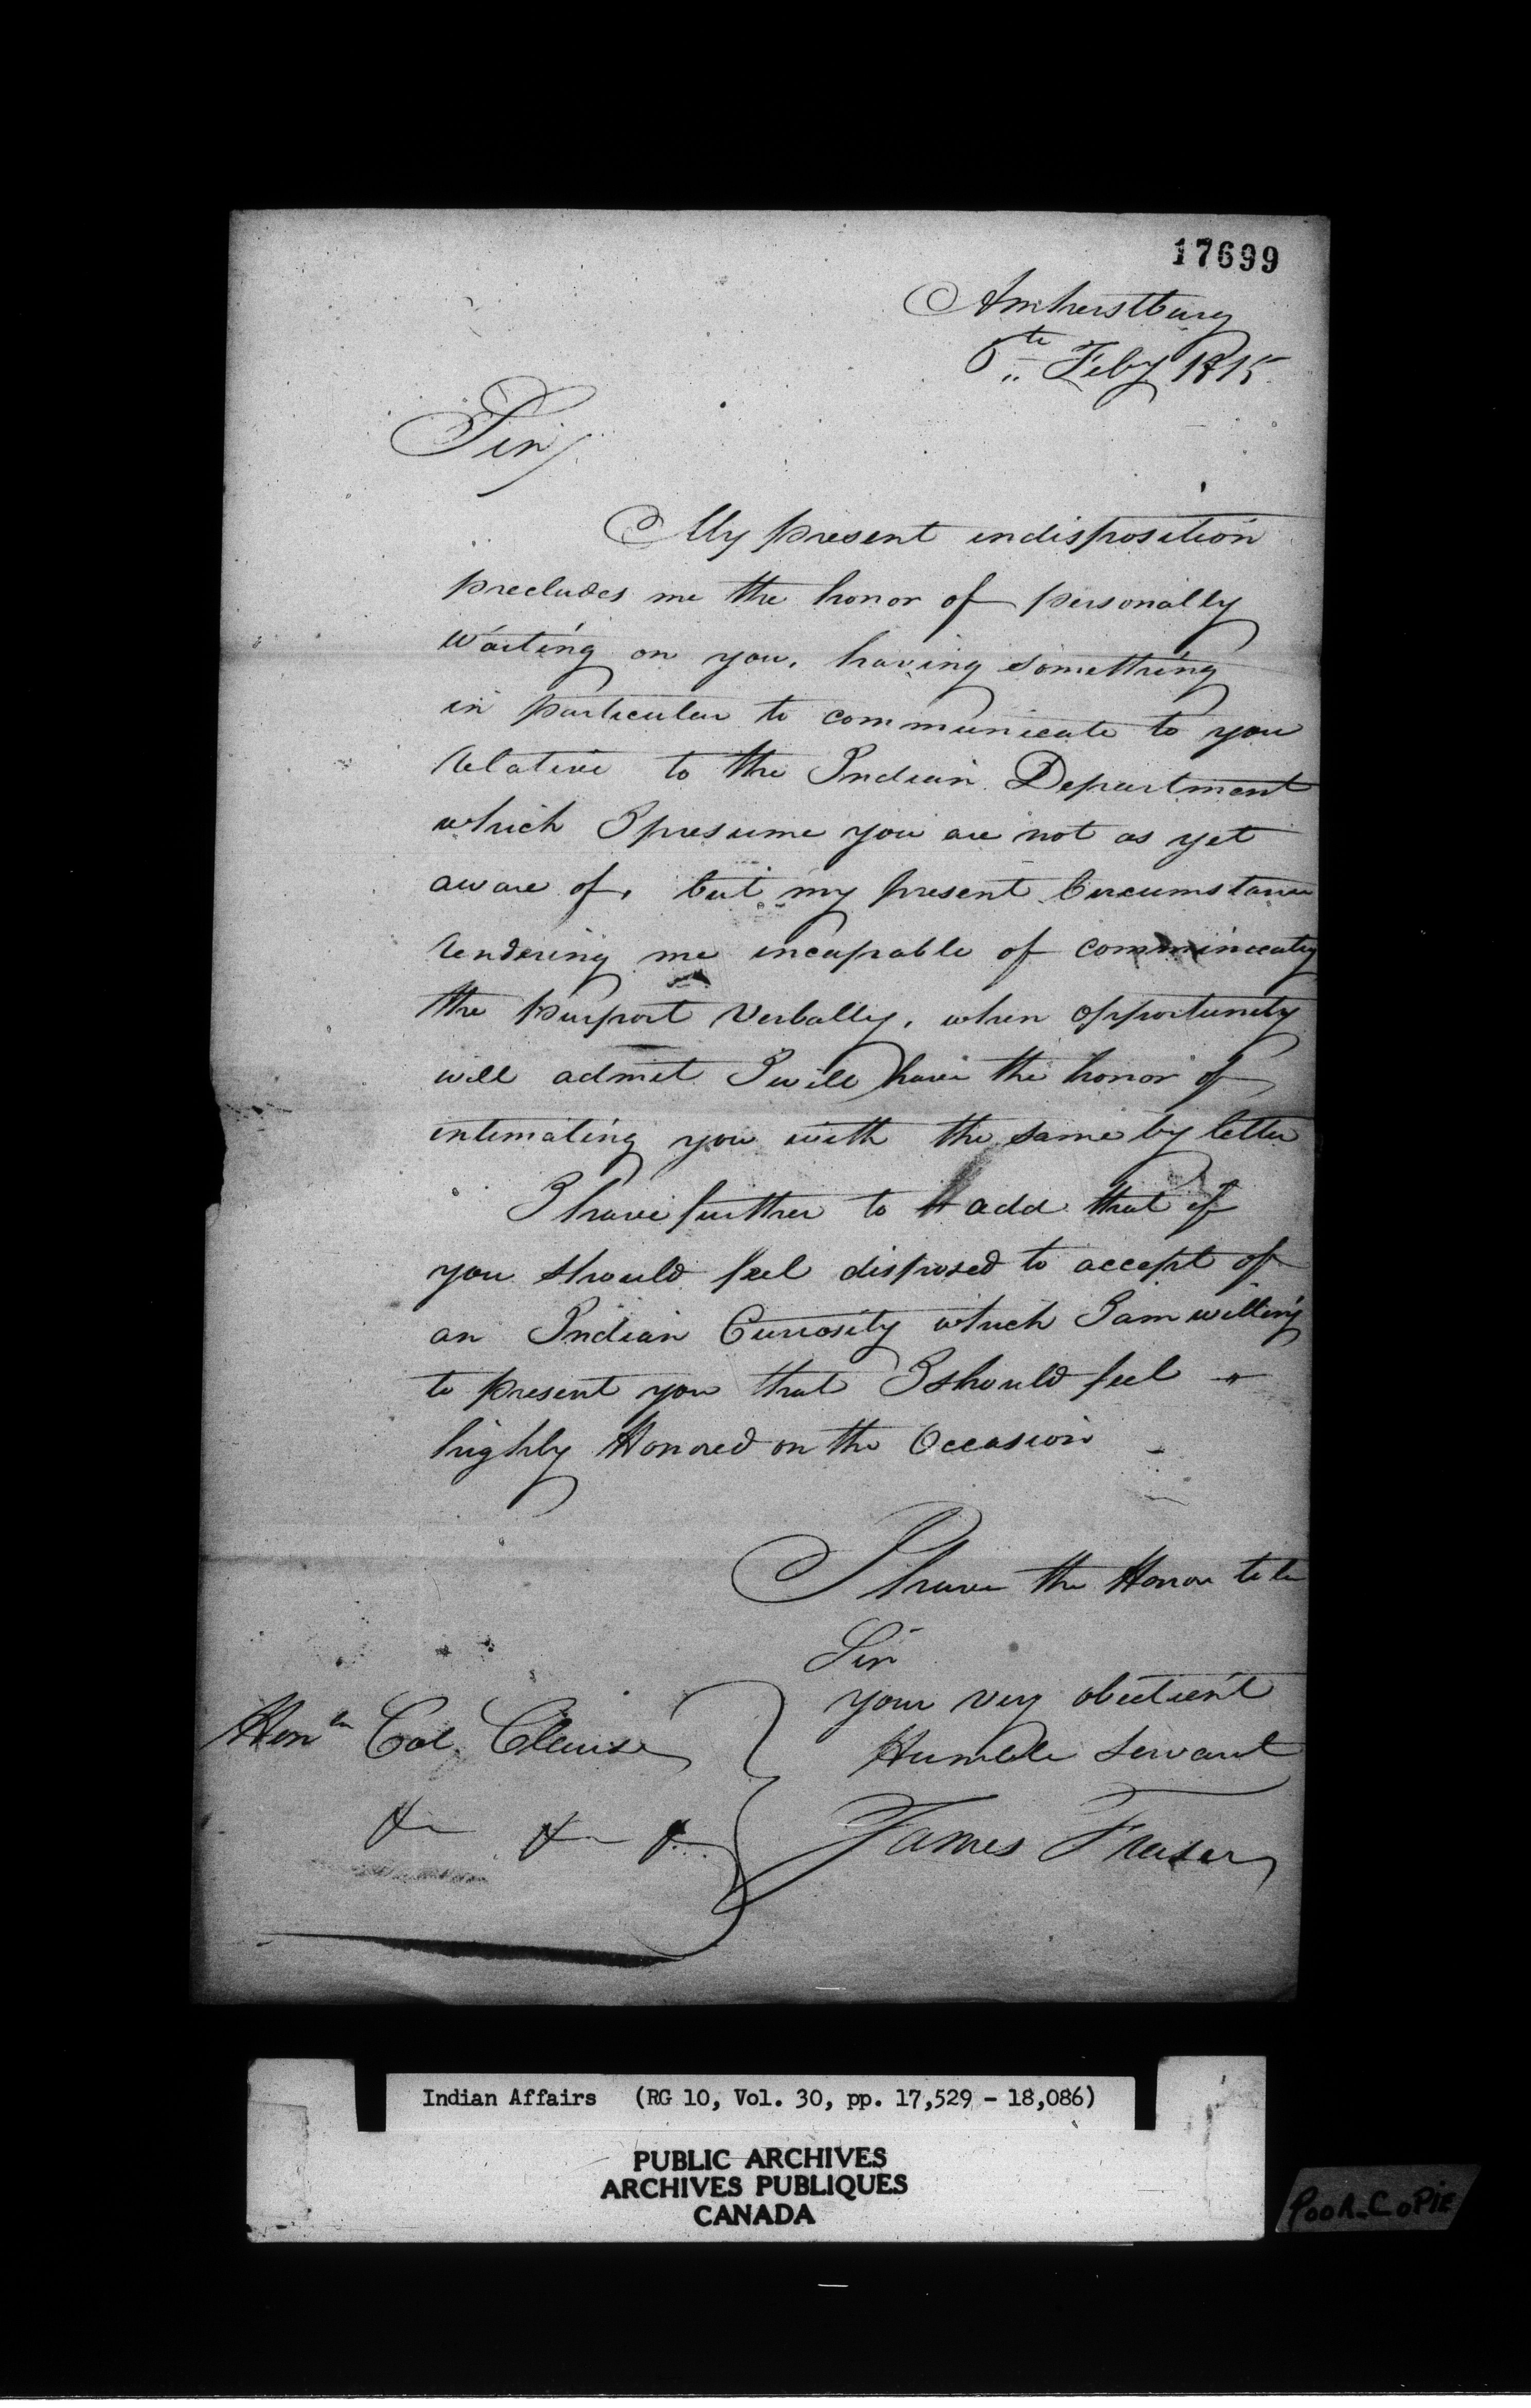 17699
Amherstburg
6th Feby 1815
Sir/
My present indisposition
precludes me the honor of personally
waiting on you, having something
in particular to communicate to you
relative to the Indian Department
which I presume you are not as yet
aware of, but my present Circumstance
rendering me incapable of communicating
the purport Verbally, when opportunity
will admit I will have the honor of
intimating you with the same by letter
I have further to add that if
you should feel disposed to accept of
an Indian Curiosity which I am willing
to present you that I should feel
highly Honored on the Occasion
I have the Honor to be
Sir
your very obedient
Humble Servant
James Fraser
Honble Col. Clause
&c &c &c
Indian Affairs (RG 10, Vol. 30, pp. 17,529 - 18,086)
PUBLIC ARCHIVES
ARCHIVES PUBLIQUES
CANADA
POOR COPIE